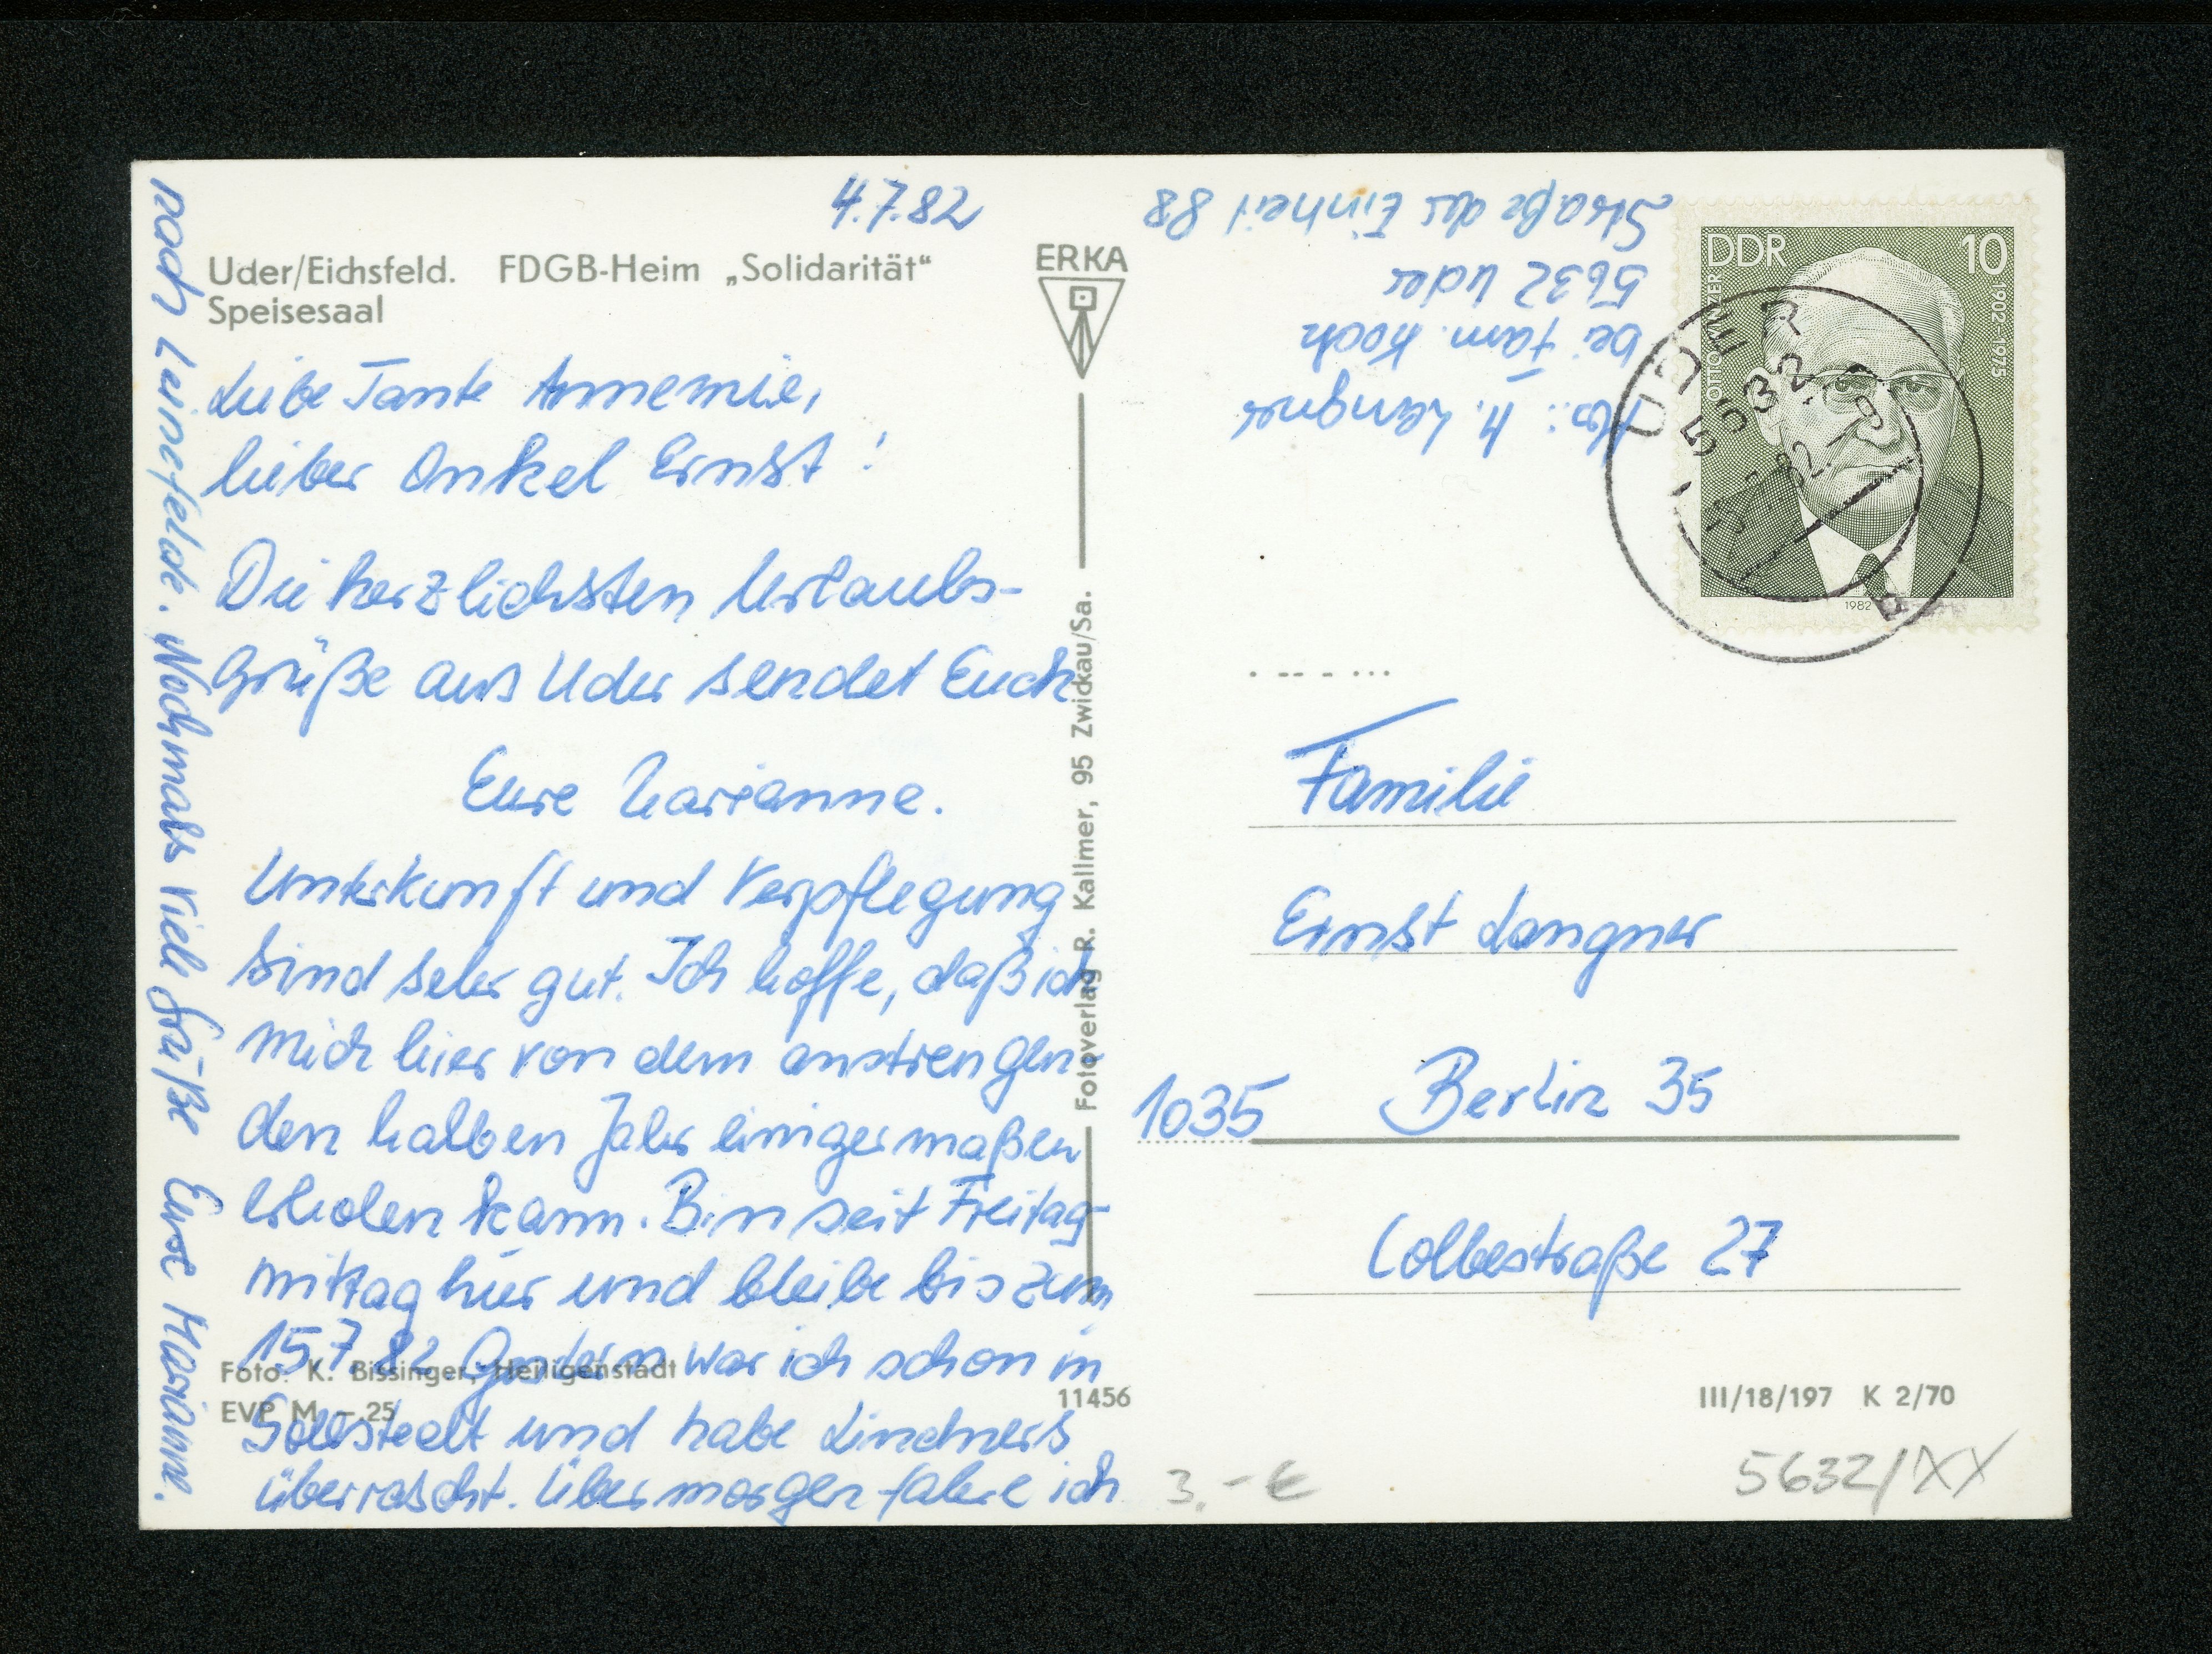 4.7.82
Uder/Eichsfeld. FDGB-Heim „Solidarität“
Speisesaal
Liebe Tante Annemie,
lieber Onkel Ernst!
Die herzlichsten Urlaubs-
grüße aus Uder sendet Euch
Eure Marianne.
Unterkunft und Verpflegung
sind sehr gut. Ich hoffe, daß ich
mich hier von dem anstrengen-
den halben Jahr einigermaßen
erholen kann. Bin seit Freitag-
mittag hier und bleibe bis zum
15.7.82. Gestern war ich schon in
Sollstedt und habe Lindners
überrascht. Übermorgen fahre ich
nach Leinefelde. Nochmals viele Grüße Eure Mariann.
Foto: K. Bissinger, Heiligenstadt
EVP M –.25
ERKA
Fotoverlag R. Kallmer, 95 Zwickau/Sa.
11456
Abs.: M. Langner
bei Fam. Koch
5632 Uder
Straße der Einheit 88
DDR 10
OTTO WINZER
1902-1975
1982
UDER
5632
Familie
Ernst Langner
1035 Berlin 35
Colbestraße 27
III/18/197 K 2/70
3.-€
5632/XX